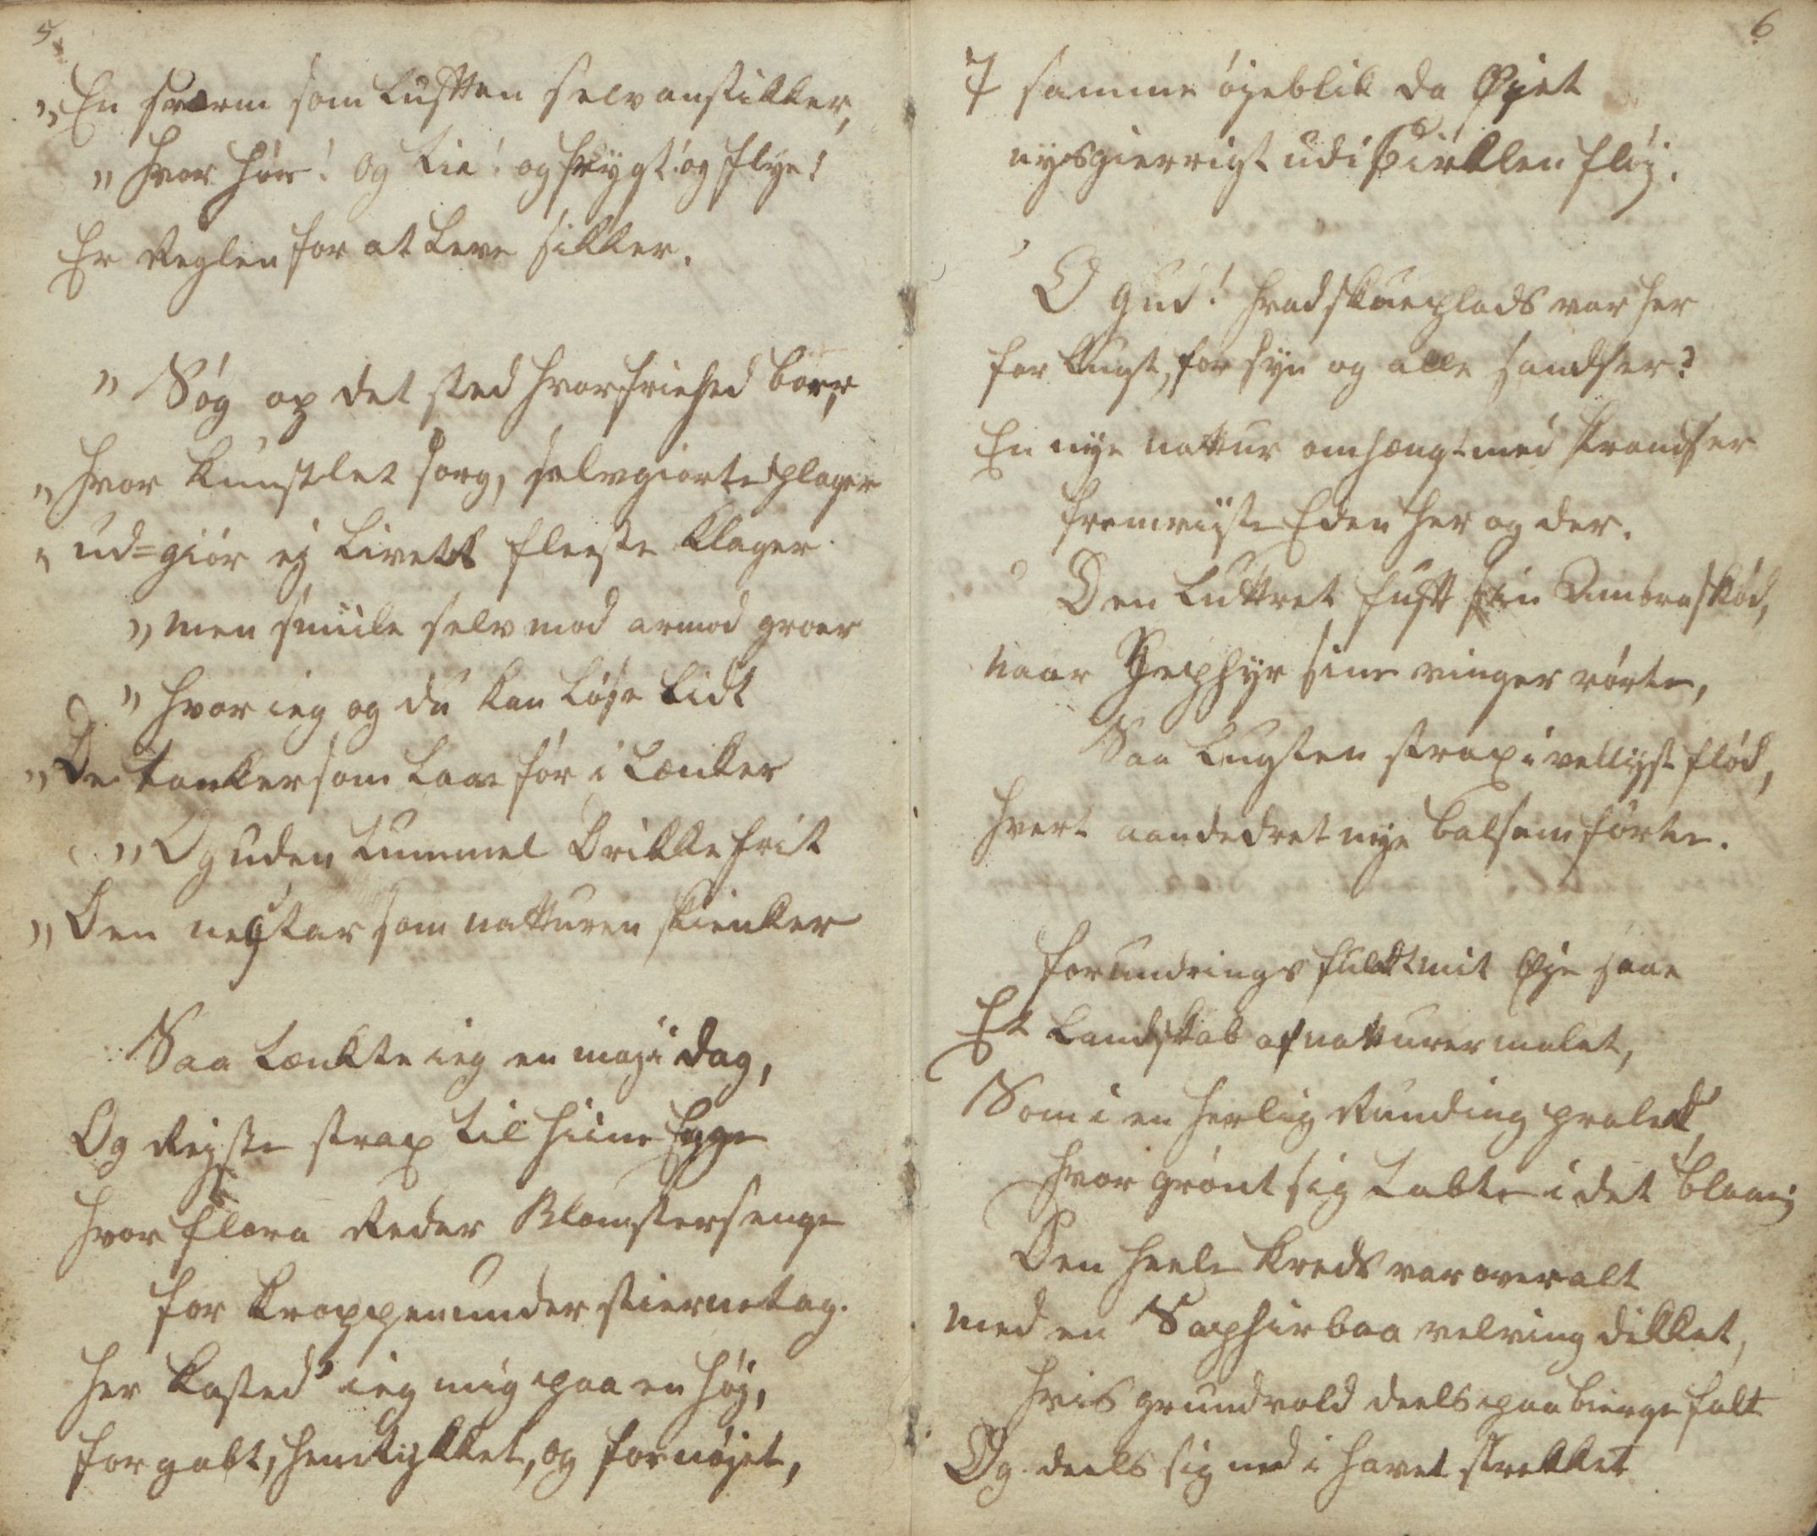 5
"En sværm som Luften selv anstikker,
"hvor hør! og tie! og frygt! og flye!
Er Reglen for at Leve sikker.
"Søg op det sted hvor friehed boer,
"hvor kunstlet sorg, selvgiorte plager
"ud=giør ej Livets fleeste klager.
"men smiile selv mod armod groer
"hvor ieg og du kan løse lidt
"De tanker som Laae før i Lænker
"Og uden tummel drikke frit
"Den nectar som natturen skienker
Saa tænkte ieg en maji dag,
Og Rejste strax til hiine Enge
hvor flora Reder Blomstersenge
for kroppen under stiernetag.
Her kasted' ieg mig paa en høj,
forgabt, henrykket, og fornøjet,
6
I samme øyeblik da Øjet
nysgierrigt ud i Cirklen fløj.
O Gud! hvad skueplads var her
for Lugt, for syn og alle sandser?
En nye nattur omhængt med krandser
fremviiste Eden her og der.
Den Luttret luft sin Ambra skiød,
naar Zephyr sine vinger rørte,
Saa Lugten strax i vellyst flød,
hvert aandedret nye balsam førte.
forundringsfuldt mit Øje saae
Et Landskab af natturen malet,
Som i en herlig Runding pralet,
hvor grønt sig tabte i det blaae;
Den heele kreds var overalt
med en Saphirblaa velving dekket,
hvis grundvold deels paa bierge faldt
Og deels sig ned i havet strekket